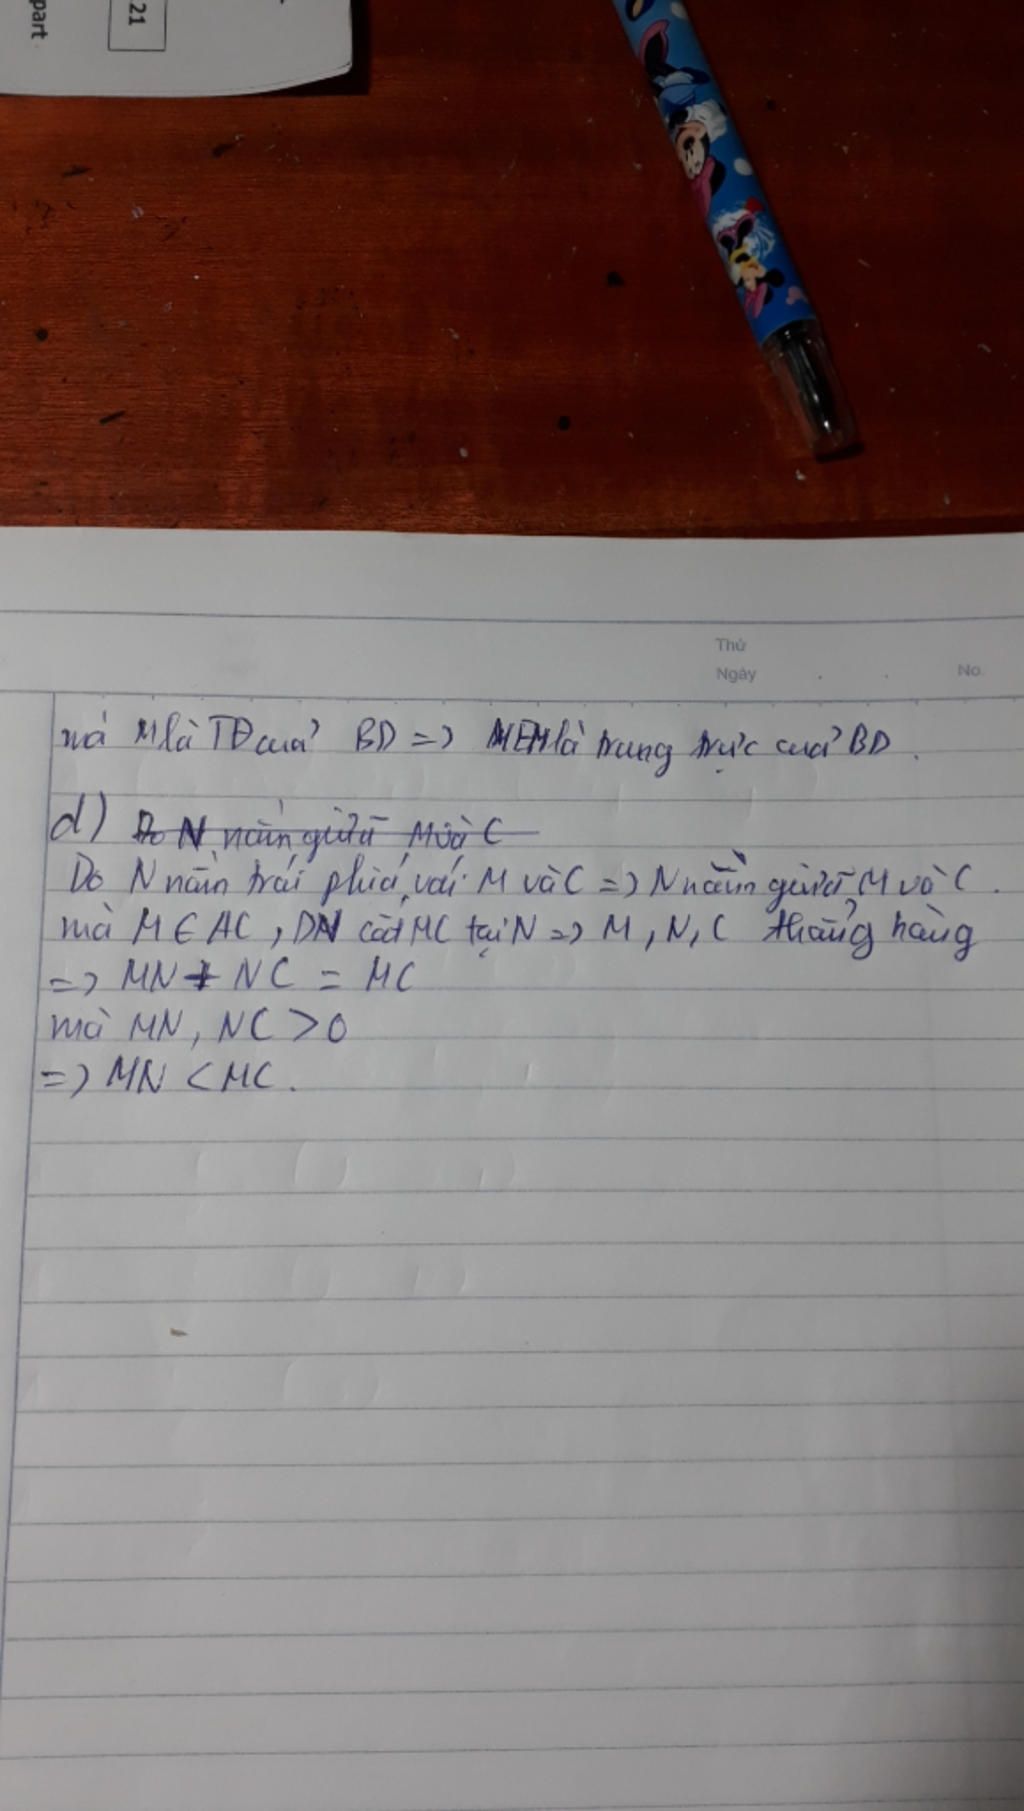 part
21
Thứ
Ngày . . No.
mà M là TĐ của BD => MEM là trung trực của BD.
d) Do N nằm giữa M và C
Do N nằn trái phía với M và C => N nằm giữa M và C.
mà M ∈ AC, DN cắt MC tại N => M, N, C thẳng hàng
=> MN + NC = MC
mà MN, NC > 0
=> MN < MC.